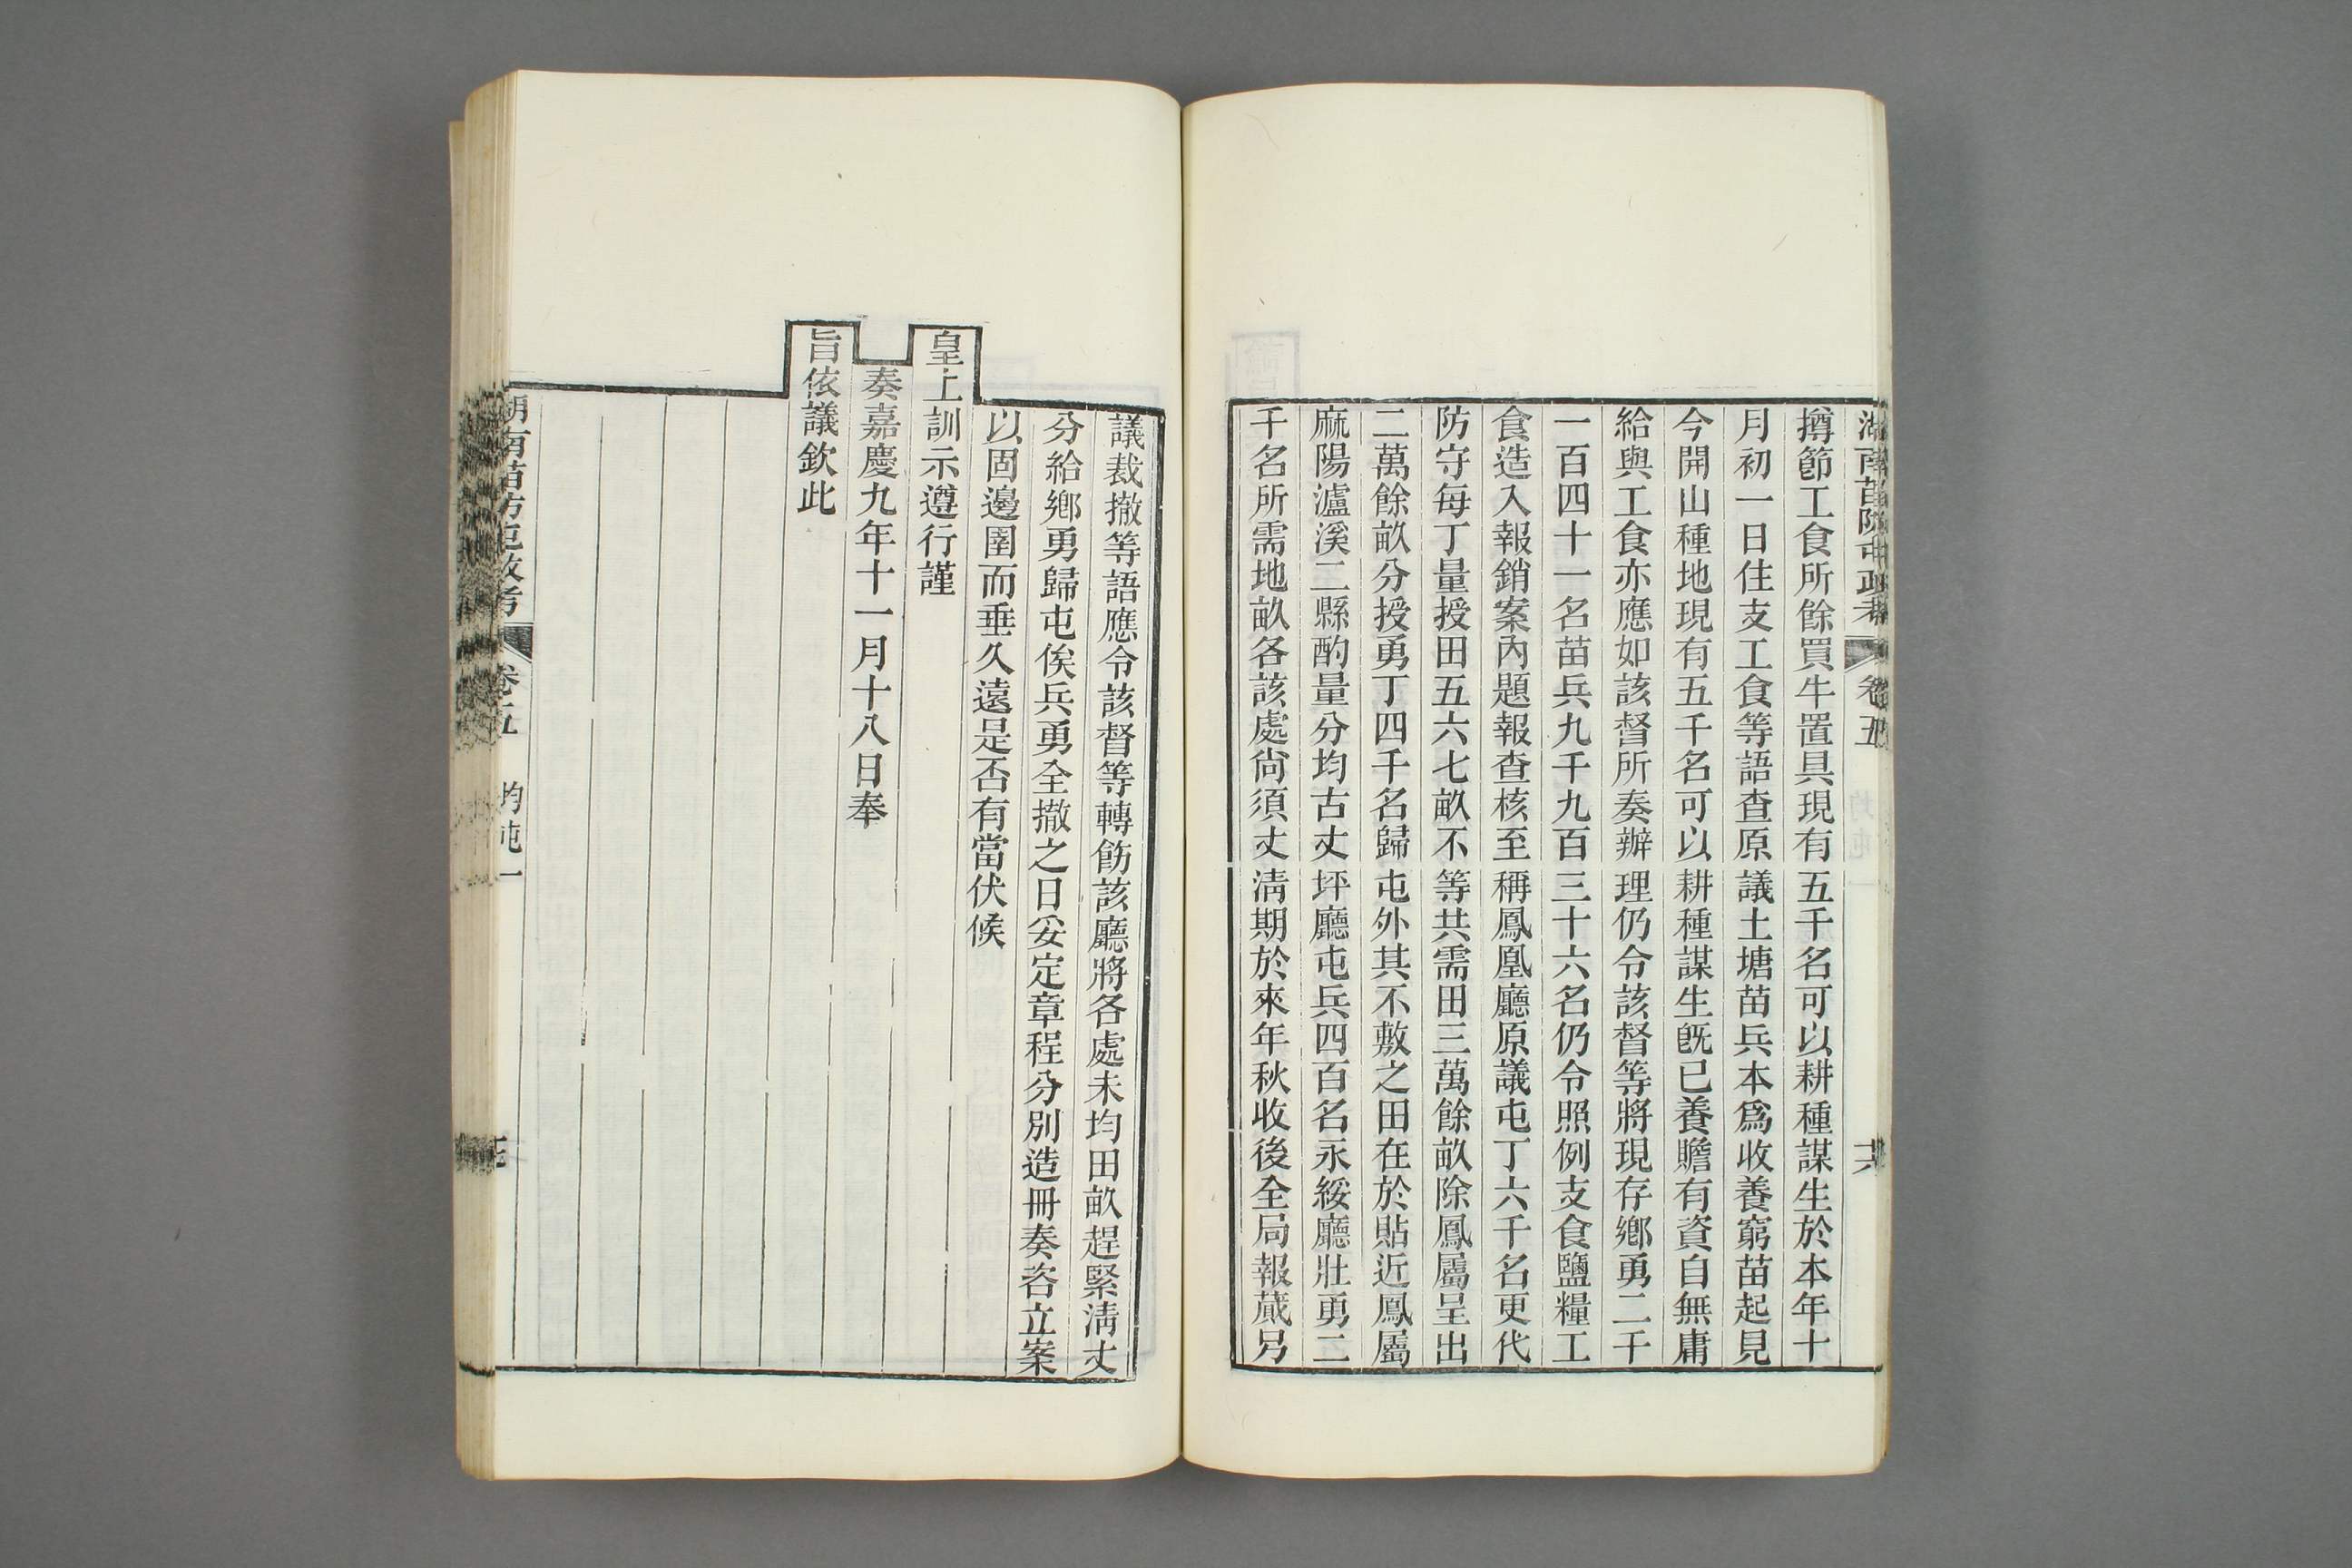 湖南苗防屯政考 卷五 六
撙節工食所餘買牛置具現有五千名可以耕種謀生於本年十
月初一日住支工食等語查原議土塘苗兵本爲收養窮苗起見
今開山種地現有五千名可以耕種謀生旣已養贍有資自無庸
給與工食亦應如該督所奏辦理仍令該督等將現存鄕勇二千
一百四十一名苗兵九千九百三十六名仍令照例支食鹽糧工
食造入報銷案內題報查核至稱鳳凰廳原議屯丁六千名更代
防守每丁量授田五六七畝不等共需田三萬餘畝除鳳屬呈出
二萬餘畝分授勇丁四千名歸屯外其不敷之田在於貼近鳳屬
麻陽瀘溪二縣酌量分均古丈坪廳屯兵四百名永綏廳壯勇二
千名所需地畝各該處尙須丈淸期於來年秋收後全局報蕆另
議裁撤等語應令該督等轉飭該廳將各處未均田畝趕緊淸丈
分給鄕勇歸屯俟兵勇全撤之日妥定章程分別造冊奏咨立案
以固邊圉而垂久遠是否有當伏候
皇上訓示遵行謹
奏嘉慶九年十一月十八日奉
旨依議欽此
湖南苗防屯政考 卷五 均屯一